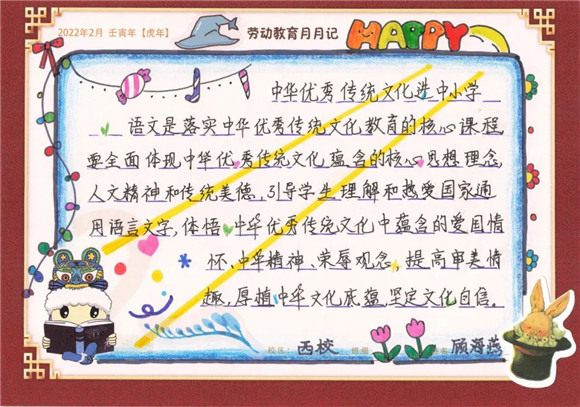 2022年2月 壬寅年【虎年】
劳动教育月月记
HAPPY
中华优秀传统文化进中小学
语文是落实中华优秀传统文化教育的核心课程,
要全面体现中华优秀传统文化蕴含的核心思想理念,
人文精神和传统美德,引导学生理解和热爱国家通
用语言文字,体悟中华优秀传统文化中蕴含的爱国情
怀、中华精神、荣辱观念,提高审美情
趣,厚植中华文化底蕴,坚定文化自信。
校区: 西校 班级 顾海燕